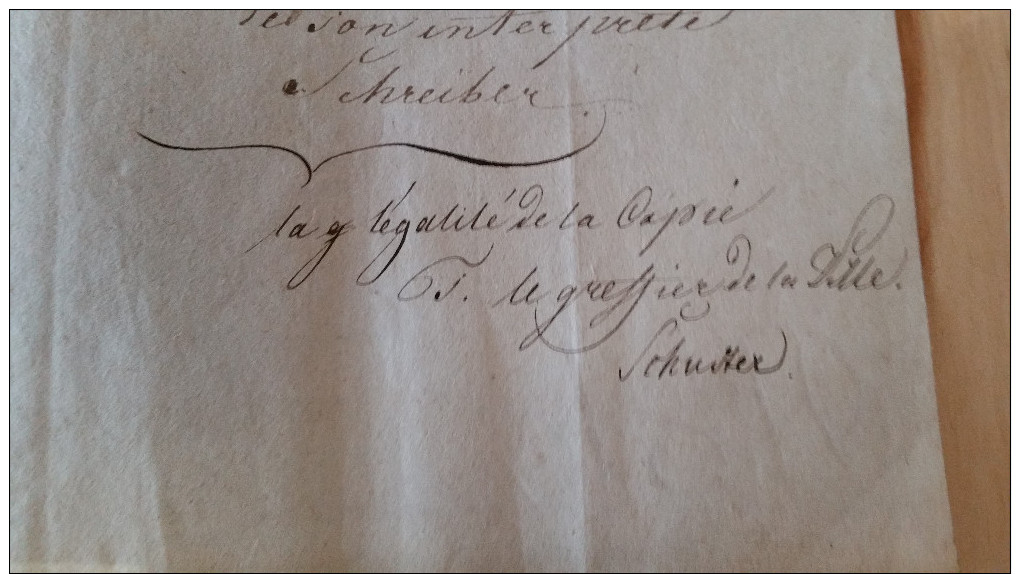 son interprete
Schreiber
la g légalité de la Copie
T. le greffier de la Ville.
Schuster